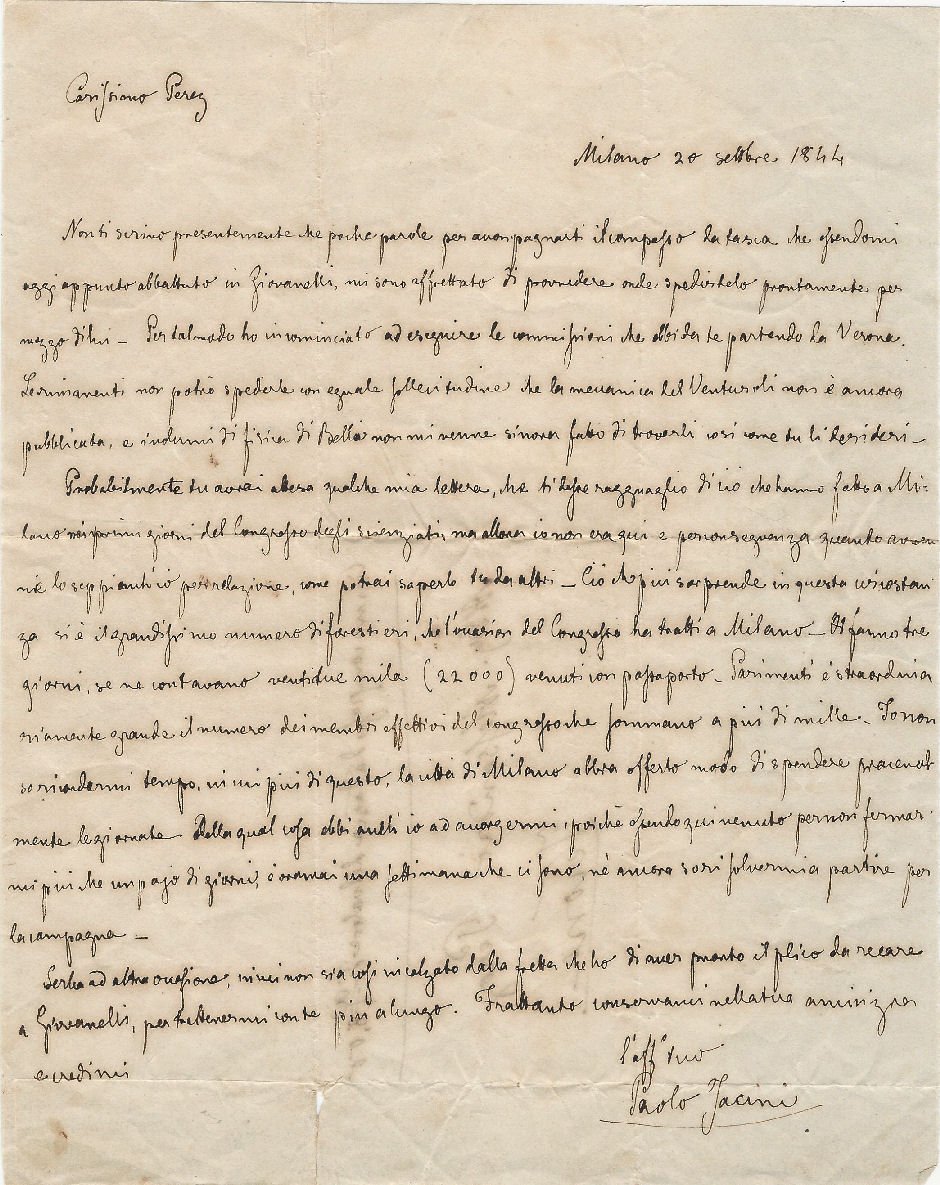 Carissimo Perez
Milano 20 settbre 1844
Non ti scrivo presentemente che poche parole per accompagnarti il compasso da tasca che essendomi
oggi appunto abbattuto in Giovanelli, mi sono affrettato di provvedere onde spedirtelo prontamente per
mezzo di lui – Per tal modo ho incominciato ad eseguire le commissioni che ebbi da te partendo da Verona.
non potrò spederle con eguale sollecitudine che la meccanica del Venturoli non è ancora
pubblicata, e i di fisica di Bella non mi venne sinora fatto di trovarli così come tu li desideri –
Probabilmente tu avrai attesa qualche mia lettera, che ti desse ragguaglio di ciò che hanno fatto a Mi-
lano nei primi giorni del Congresso degli scienziati, ma allora io non era qui e per conseguenza quanto avven
ne lo seppi anch'io per relazione, come potrai saperlo tu da altri – Ciò che più sorprende in questa circostan
za si è il grandissimo numero di forestieri, che l'occasion del Congresso ha tratti a Milano – Di fanno tre
giorni, se ne contavano ventidue mila (22000) venuti con passaporto – Parimenti è straordina
riamente grande il numero dei membri effettivi del congresso che sommano a più di mille – Io non
so ricordarmi tempo, in cui più di questo, la città di Milano abbia offerto modo di spendere piacevol
mente le giornate – Della qual cosa ebbi anch'io ad accorgermi, poichè essendo qui venuto per non fermar
mi più che un pajo di giorni, è oramai una settimana che ci sono, nè ancora so risolvermi a partire per
la campagna –
Serbo ad altra occasione, in cui non sia così incalzato dalla fretta che ho di aver pronto il plico da recare
a Giovanelli, per trattenermi con te più a lungo. Frattanto conservami nella tua amicizia
e credimi
l'aff° tuo
Paolo Jacini